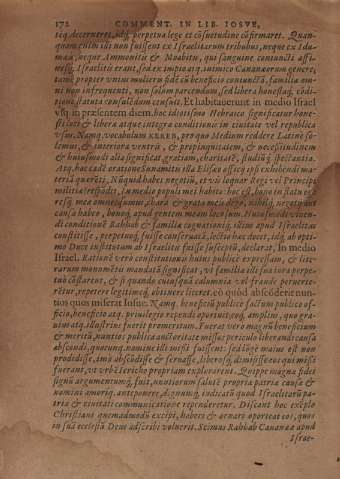 172 COMMENT. IN LIB. IOSVE,
tiq́ decerneret, idq́; perpetua lege et cõsuetudine cõfirmaret. Quan-
quam enim illi non fuissent ex Israelitarum tribubus, neque ex Idu-
mæa, neque Ammonitæ & Moabitæ, qui sanguine coniuncti affi-
nesq́; Israelitis erant, sed ex impio atq; inimico Cananæorum genere;
tamẽ propter vnius mulieris fidẽ cũ beneficio coniunctã, familiæ om-
ni non infrequenti, non solum parcendum, sed libera honestaq́; cõdi-
tione, statuta consulẽdum censuit. Et habitauerunt in medio Israel
vsq; in præsentem diem. hoc idiotismo Hebraice significatur hone-
stiore & libera atque integra conditione in ciuitate vel republica
vsus. Namq; vocabulum KEREB, pro quo Medium reddere Latini so-
lemus, & interiora ventris, & propinquitatem, & necessitudinem
& huiusmodi alia significat, gratiam, charitatẽ, studiũ q́; spectantia.
Atq; hoc cadit oratione Sunamitis illa Elisæo officij ipsi exhibendi ma-
teriã quærẽti, Nũquid habes negotiũ, et vis loquar Regi vel Principi
militiæ? respõdit, In medio populi mei habito: hoc est, bono in statu est
res q́; mea omne est commune, chara & grata meis dego, nihil q́; negotij aut
causæ habeo, bonoq́; apud gentem meam loco sum. Huiusmodi viuen-
di conditione Rahab & familia cognationisq́; illius apud Israelitas
constitisse, perpetuoq́; fuisse conseruata, inctus hac docet, idq́; ab opti-
mo Duce institutum ab Israelitis fuisse susceptũ, declarat, In medio
Israel. Ratione verò constitutionis huius publicè expressam, & lit-
terarum monumẽtis mandatã significat, vt familiæ illi sua iura perpe-
tuò cõstarent, & si quando cuiusquã calumnia vel fraude peruerte-
retur, repetere legitimeq́; obtinere liceret. eò quòd absconderit nun-
tios quos miserat Iosue. Namq; beneficiũ publico factum publico of-
ficio, beneficio atq; priuilegio rependi oportuit, eoq́; amplius, quo gra-
uius atq; illustrius fuerit promeritum. Fuerat verò magnũ beneficium
& meritũ, nuntios publica auctoritate missos periculo liberandi causa
abscondi, quocunq; nomine illi missi fuissent: sed longè maius est non
prodidisse, imò abscõdisse & seruasse, liberosq́; dimisisse eos qui missi
fuerant, vt vrbẽ Iericho propriam explorarent. Quippe magna fidei
signũ argumentumq́; fuit, nuntiorum salutẽ propriæ patriæ causa &
nominis amoriq́; anteponere, dignumq́; indicatũ quod Israelitarũ pa-
tria & ciuitati communicatione rependeretur. Discant hoc exẽplo
Christiani quemadmodũ excipi, haberi & ornari oporteat eos, quos
in suã ecclesiã Deus adscribi voluerit. Scimus Rahab Cananæã apud
Israe-